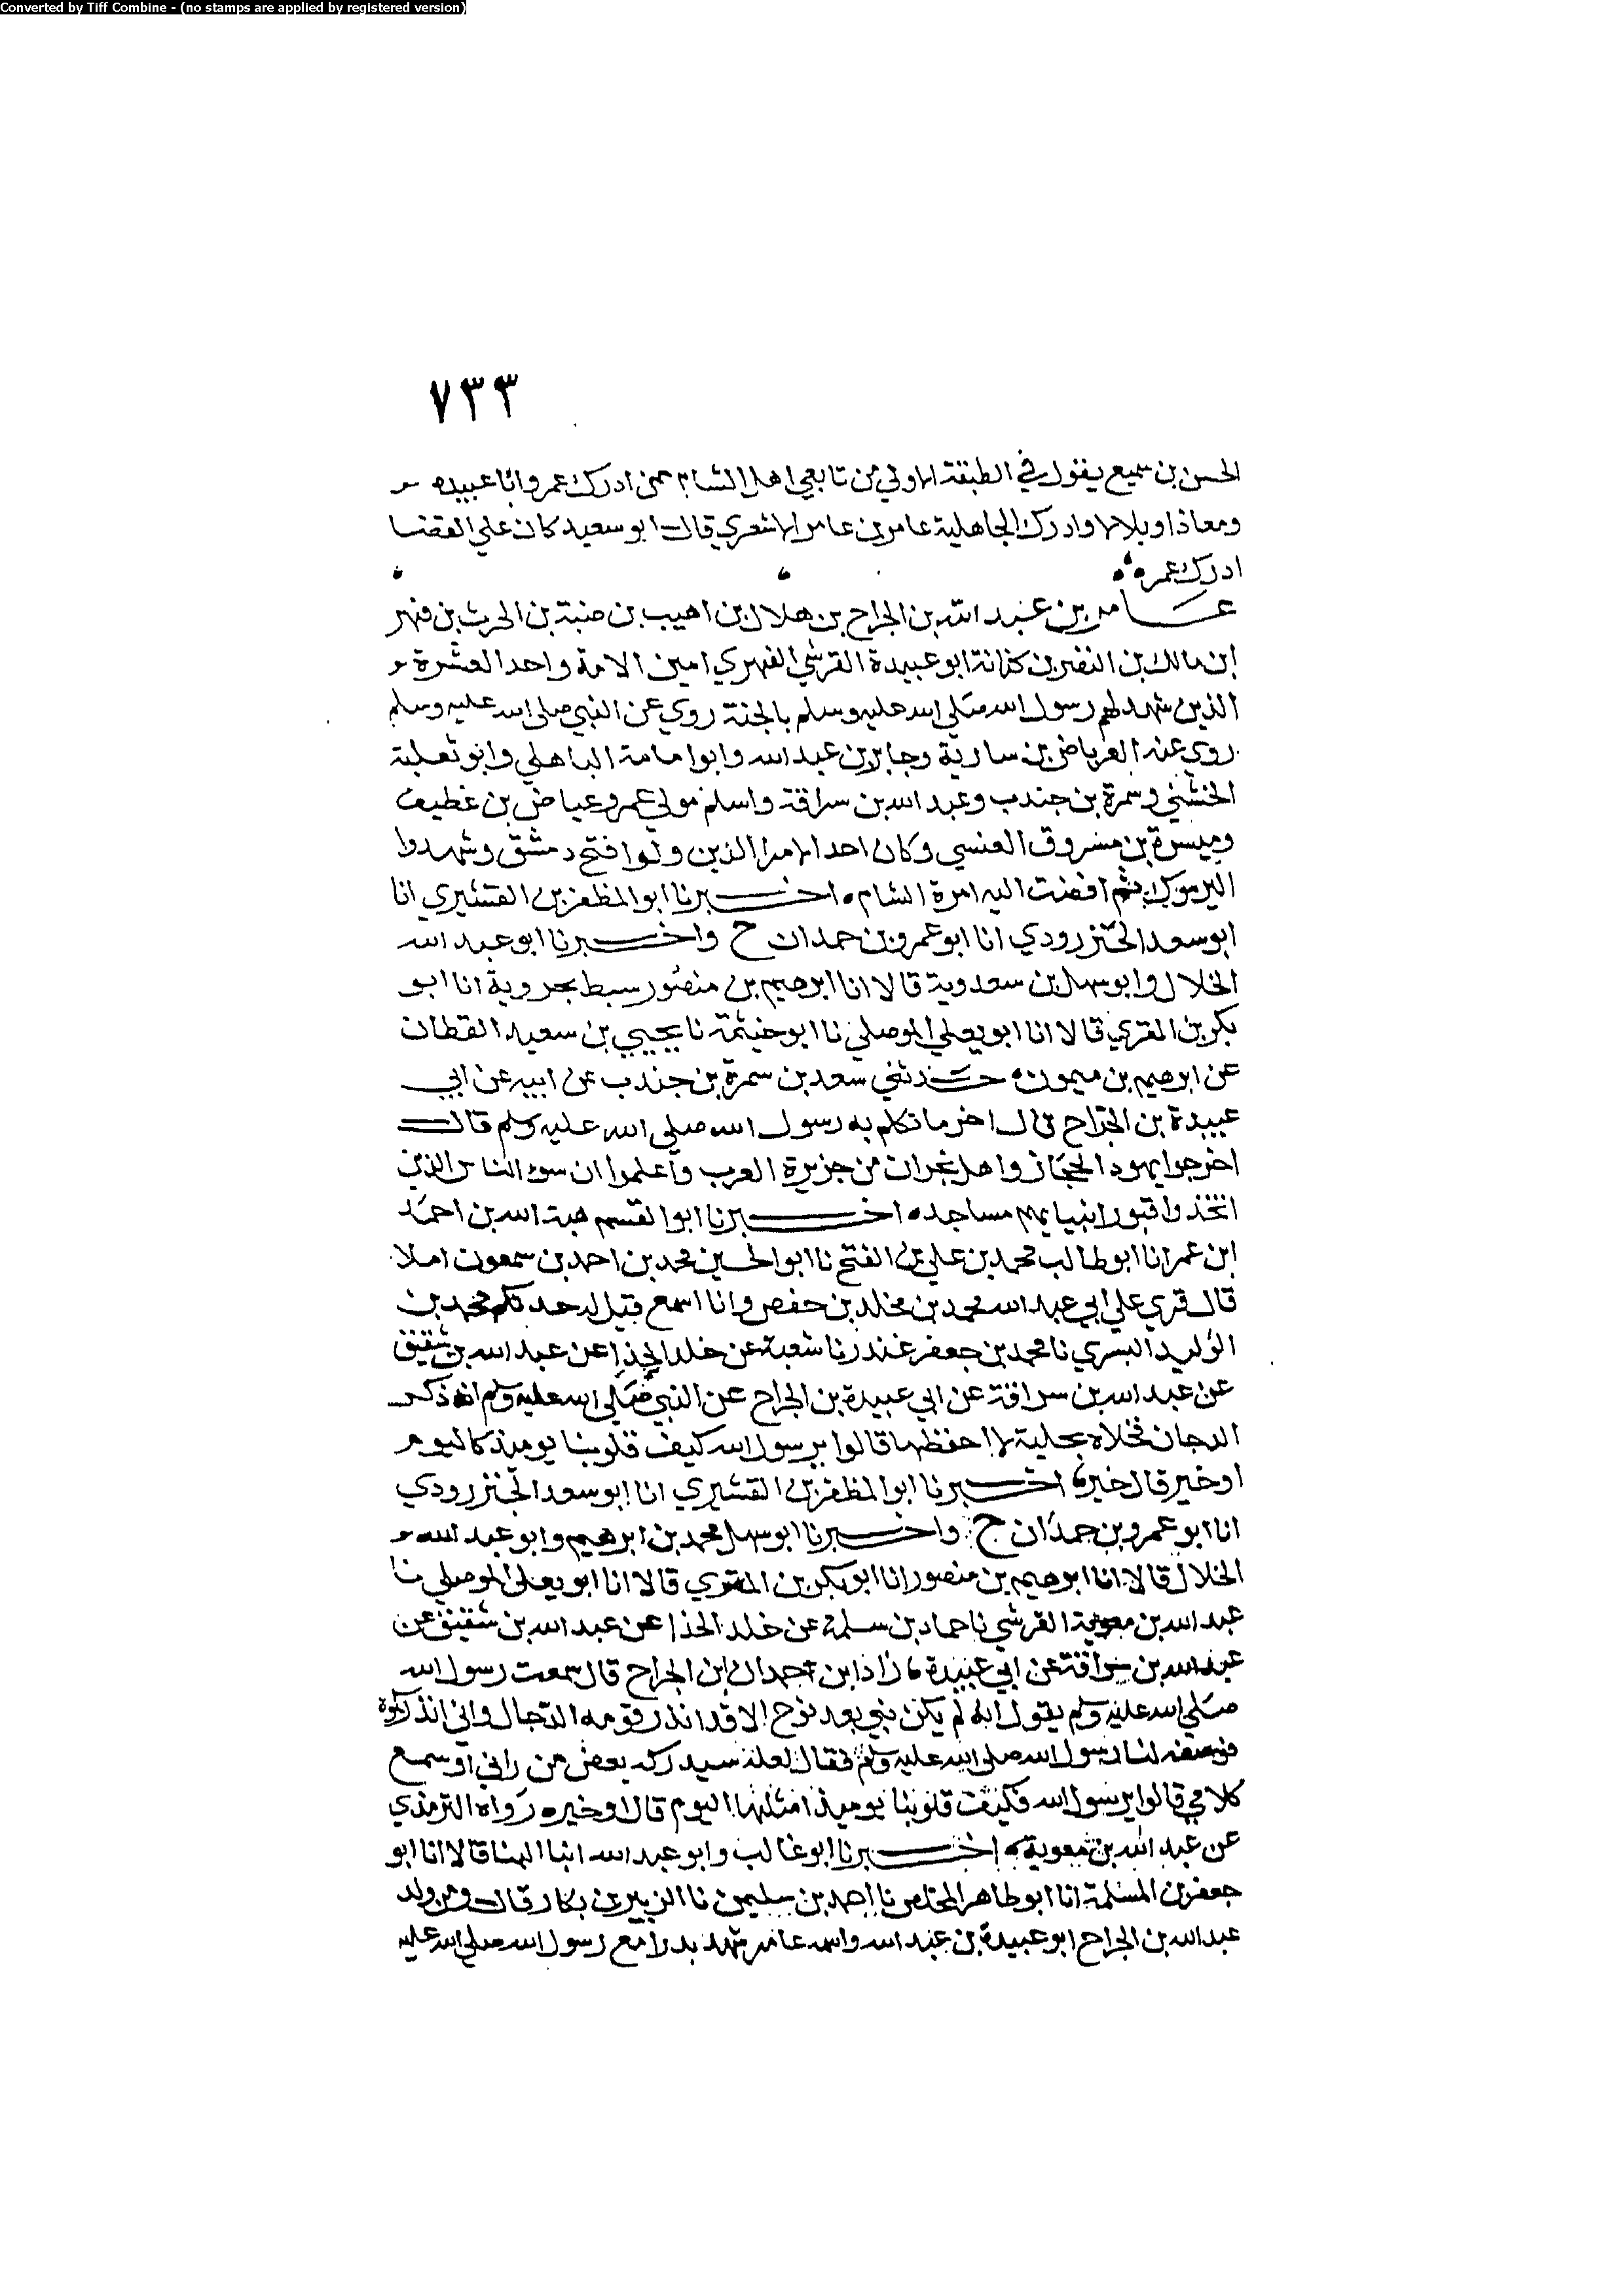 Converted by Tiff Combine - (no stamps are applied by registered version)
٧٣٣
الحسن بن سميع يقول في الطبقة الاولي من تابعي اهل الشام ممن ادرك عمر وابا عبيده
ومعاذا وبلالا وادرك الجاهلية عامر بن عامر الاشعري قال ابو سعيد كان علي القضا
ادرك عمر ه
عامر بن عبد الله بن الجراح بن هلال بن اهيب بن ضبة بن الحرث بن فهر
ابن مالك بن النضر بن كنانة ابو عبيدة القرشي الفهري امين الامة واحد العشرة
الذين شهد لهم رسول الله صلي الله عليه وسلم بالجنة روي عن النبي صلي الله عليه وسلم
روي عنه العرباض بن سارية وجابر بن عبد الله وابو امامة الباهلي وابو ثعلبة
الخشني وسمرة بن جندب وعبد الله بن سراقة واسلم مولي عمر وعياض بن غطيف
وميسرة بن مسروق العنسي وكان احد الامرا الذين ولوا فتح دمشق وشهدوا
اليرموك ثم افضت اليه امرة الشام ه اخبرنا ابو المظفر بن القشيري انا
ابو سعد الجنزرودي انا ابو عمرو بن حمدان ح واخبرنا ابو عبد الله
الخلال وابو سهل بن سعدوية قالا انا ابرهيم بن منصور سبط بحروية انا ابو
بكر بن المقري قالا انا ابو يعلي الموصلي نا ابو خيثمة نا يحيي بن سعيد القطان
عن ابرهيم بن ميمون حدثني سعد بن سمرة بن جندب عن ابيه عن ابي
عبيدة بن الجراح قال اخر ما تكلم به رسول الله صلي الله عليه وسلم قال
اخرجوا يهود الحجاز واهل نجران من جزيرة العرب واعلموا ان سوء الناس الذين
اتخذوا قبور انبيايهم مساجد ه اخبرنا ابو القسم هبة الله بن احمد
ابن عمر انا ابو طالب محمد بن علي بن الفتح نا ابو الحسين محمد بن احمد بن سمعون املا
قال قري علي ابي عبد الله محمد بن مخلد بن حفص وانا اسمع قيل له حدثكم محمد بن
الوليد البسري نا محمد بن جعفر غندر نا شعبة عن خلد الحذا عن عبد الله بن شقيق
عن عبد الله بن سراقة عن ابي عبيدة بن الجراح عن النبي صلي الله عليه وسلم انه ذكر
الدجال فحلاه بحلية لا احفظها قالوا يرسول الله كيف قلوبنا يوميذ كاليوم
او خير قال خير ه اخبرنا ابو المظفر بن القشيري انا ابو سعد الجنزرودي
انا ابو عمرو بن حمدان ح واخبرنا ابو سهل محمد بن ابرهيم وابو عبد الله
الخلال قالا انا ابرهيم بن منصور انا ابو بكر بن المقري قالا انا ابو يعلي الموصلي نا
عبد الله بن معوية القرشي نا حماد بن سلمة عن خلد الحذا عن عبد الله بن شقيق عن
عبد الله بن سراقة عن ابي عبيدة زاد ابن حمدان ابن الجراح قال سمعت رسول الله
صلي الله عليه وسلم يقول انه لم يكن نبي بعد نوح الا قد انذر قومه الدجال واني انذركموه
فوصفه لنا رسول الله صلي الله عليه وسلم فقال لعله سيدركه بعض من راني او سمع
كلامي قالوا يرسول الله فكيف قلوبنا يوميذ امثلها اليوم قال او خير ه رواه الترمذي
عن عبد الله بن معوية ه اخبرنا ابو غالب وابو عبد الله ابنا البنا قالا انا ابو
جعفر بن المسلمة انا ابو طاهر المخلص نا احمد بن سليمن نا الزبير بن بكار قال ومن ولد
عبد الله بن الجراح ابو عبيدة بن عبد الله واسمه عامر شهد بدرا مع رسول الله صلي الله عليه